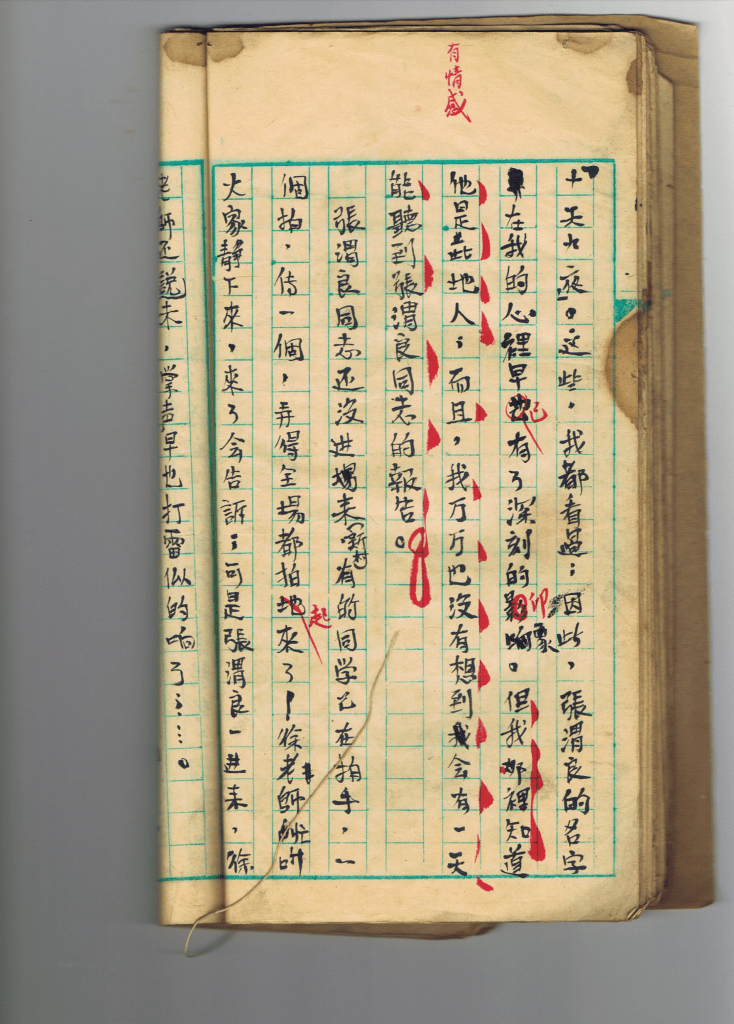 有情感
十天九夜。这些，我都看過；因此，張渭良的名字
在我的心裡早也有了深刻的影响。但我那裡知道
已
印象
他是此地人；而且，我万万也沒有想到我会有一天
能聽到張渭良同志的報告。
張渭良同志还沒进場来，有的同学已在拍手，一
個拍，传一個，弄得全場都拍地來了！徐老師忙叫
起
大家静下來，來了会告訴；可是張渭良一进来，徐
老師还說未，掌声早也打雷似的响了……。